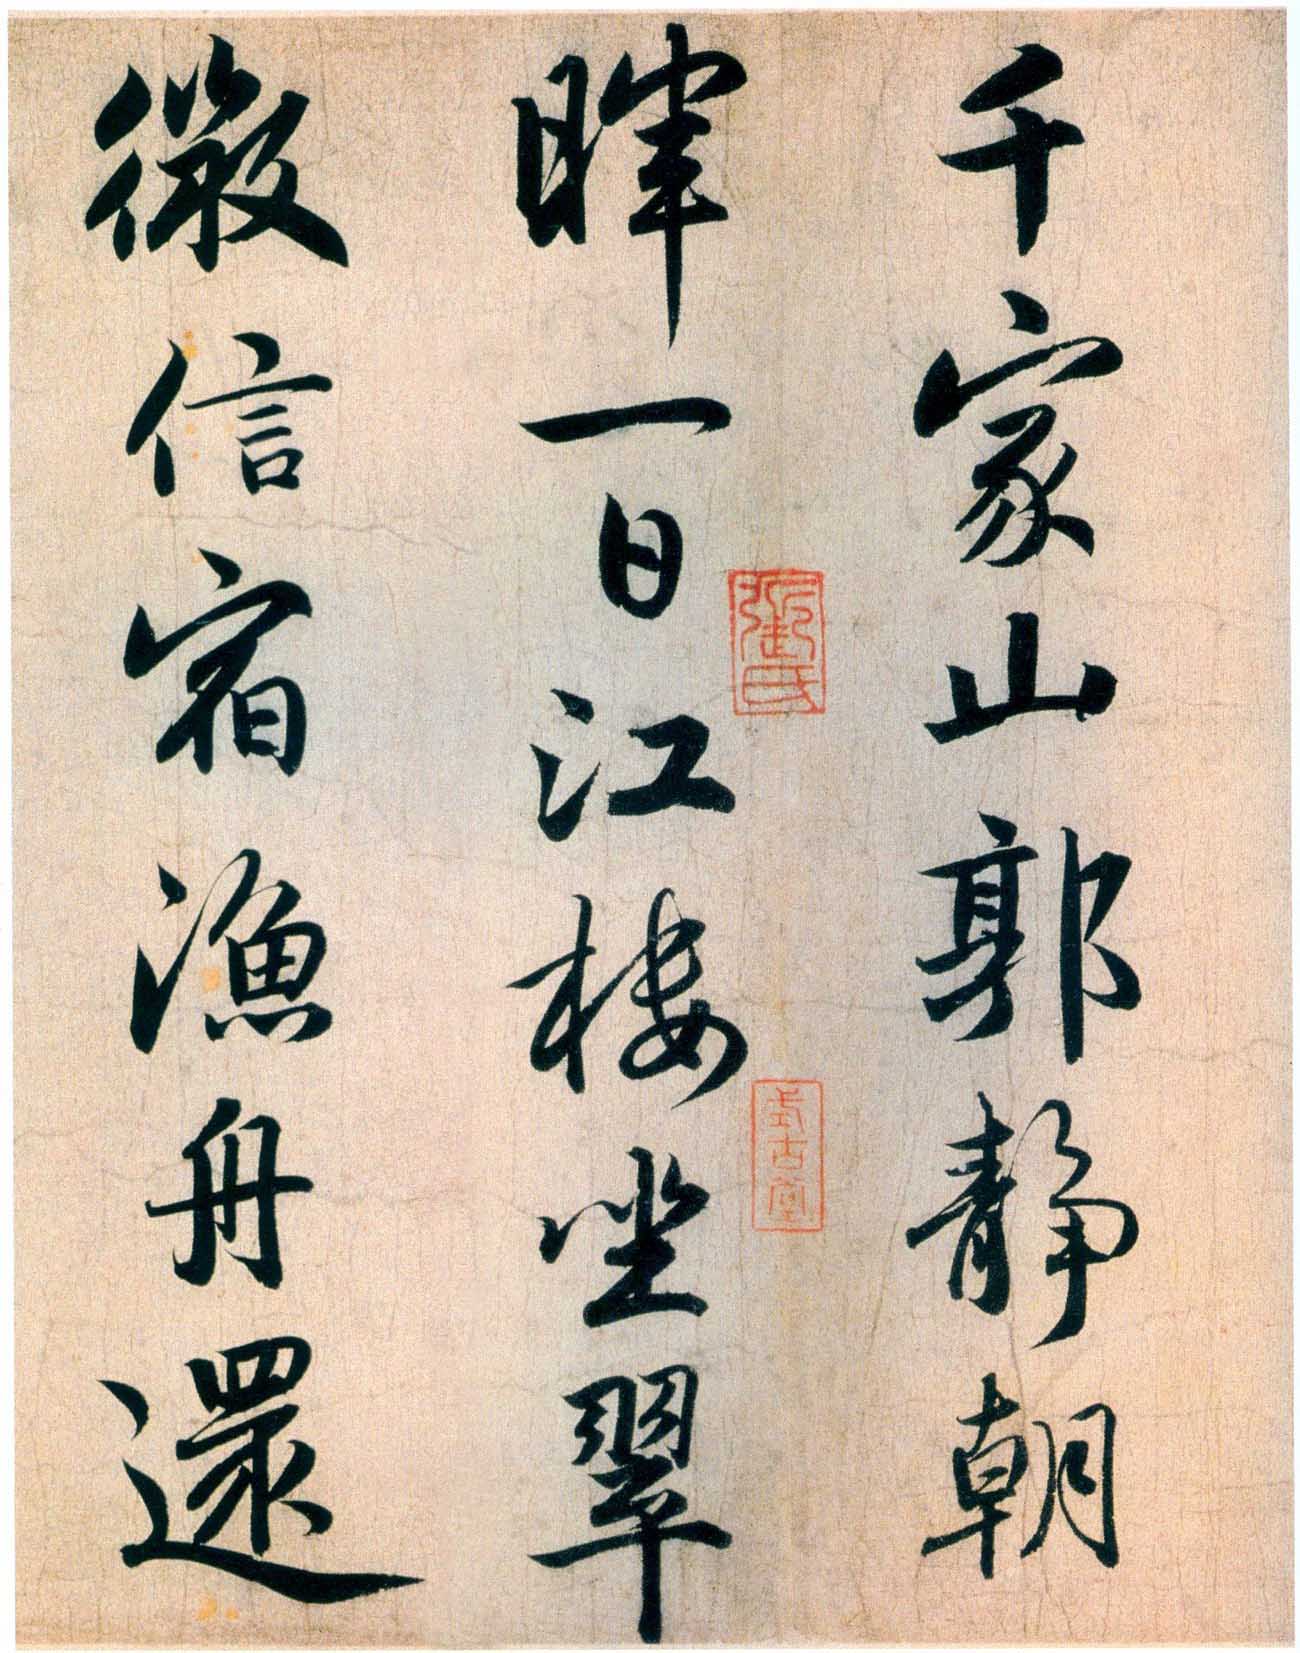 千家山郭靜朝
暉一日江樓坐翠
微信宿漁舟還
式古堂